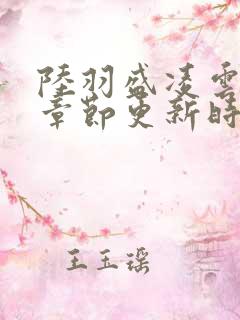 陸羽盛凌雲
章節更新時
王玉瑶